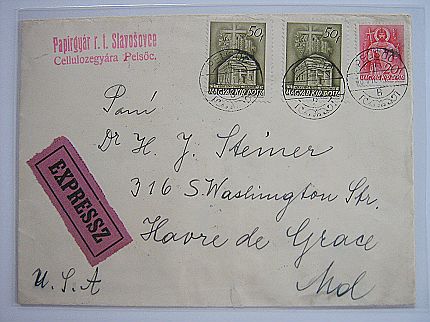 Papirgyár r. t. Slavošovce
Cellulozegyára Pelsőc.
50f
MAGYAR KIR. POSTA
50f
MAGYAR KIR. POSTA
20f
MAGYAR KIR. POSTA
EXPRESSZ
Pani
Dr H. J. Steiner
316 S Washington Str.
Havre de Grace
U.S.A Md